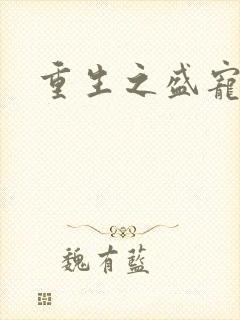 重生之盛寵
魏有藍